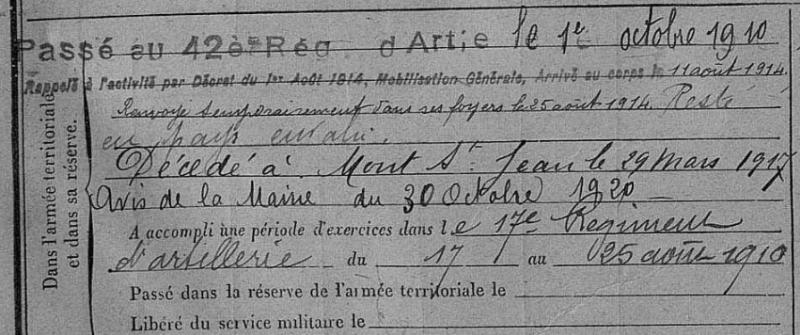 Passé au 42è Rég. d'Artie le 1er octobre 1910
Rappelé à l'activité par Décret du 1er Août 1914, Mobilisation Générale, Arrivé au corps le 11 août 1914.
Renvoyé temporairement dans ses foyers le 25 août 1914. Resté
en pays envahi.
Décédé à Mont St Jean le 29 mars 1917
Avis de la Mairie du 30 Octobre 1920
Dans l'armée territoriale
et dans sa réserve.
A accompli une période d'exercices dans le 17e Régiment
d'artillerie du 17 au 25 août 1910
Passé dans la réserve de l'armée territoriale le
Libéré du service militaire le